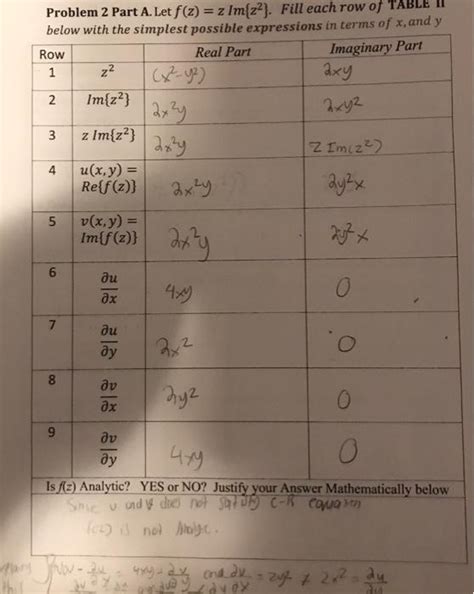 Problem 2 Part A. Let f(z) = z Im{z²}. Fill each row of TABLE II
below with the simplest possible expressions in terms of x, and y
Row Real Part Imaginary Part
1 z² (x²-y²) 2xy
2 Im{z²} 2x²y 2xy²
3 z Im{z²} 2x²y Z Im(z²)
4 u(x, y) = Re{f(z)} 2x²y 2y²x
5 v(x, y) = Im{f(z)} 2x²y 2y²x
6 ∂u/∂x 4xy 0
7 ∂u/∂y 2x² 0
8 ∂v/∂x 2y² 0
9 ∂v/∂y 4xy 0
Is f(z) Analytic? YES or NO? Justify your Answer Mathematically below
Since u and v does not satisfy C-R equation
f(z) is not Analytic.
∂u/∂x = 4xy = ∂v/∂y and ∂v/∂x = 2y² ≠ 2x² = ∂u/∂y